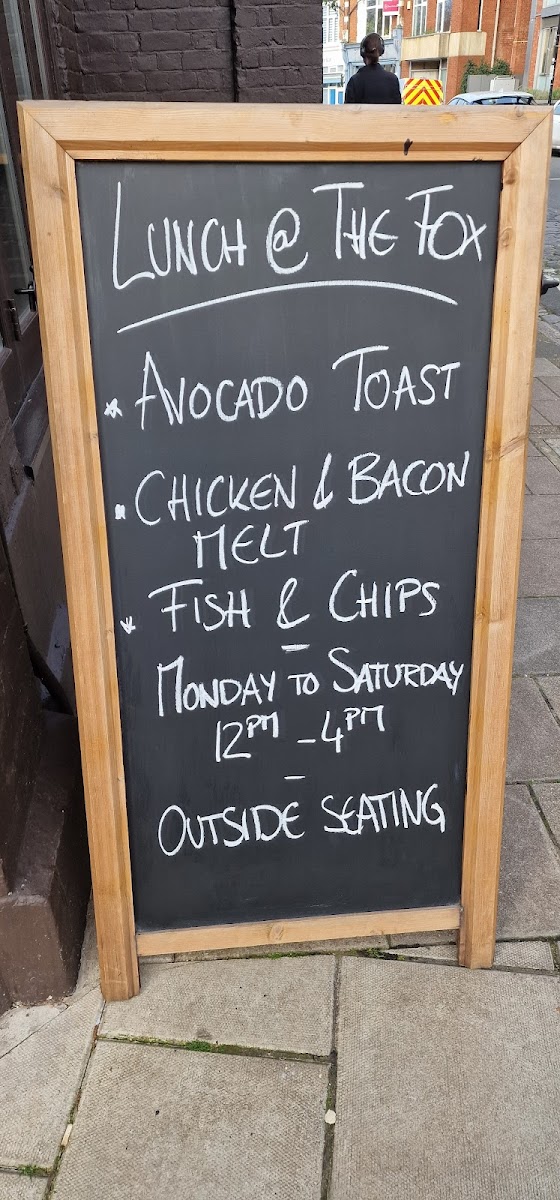 LUNCH @ THE FOX
* AVOCADO TOAST
* CHICKEN & BACON
MELT
* FISH & CHIPS
-
MONDAY TO SATURDAY
12PM - 4PM
-
OUTSIDE SEATING